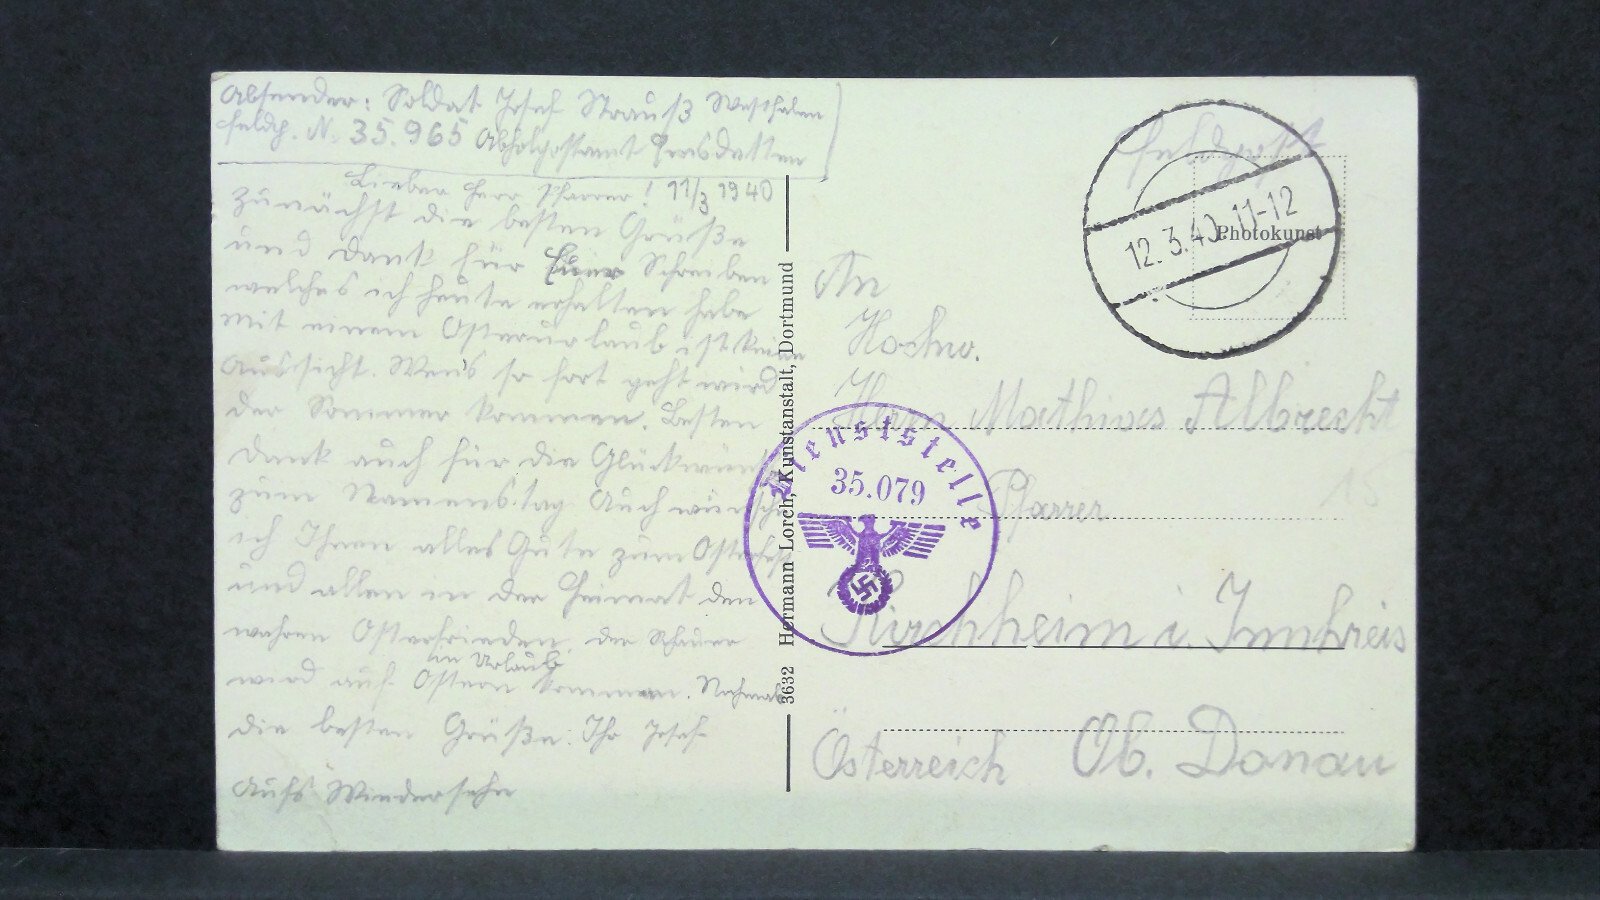 Absender: Soldat Josef Strauß Westfalen
Feldp. N. 35.965 Abholpostamt Emsdetten
Lieber Herr Pfarrer! 11/3 1940
Zunächst die besten Grüße
und Dank für Euer Schreiben
welches ich heute erhalten habe
mit einem Osterurlaub ist keine
Aussicht. Wens so fort geht wird
der Sommer kommen. Besten
Dank auch für die Glückwünsche
zum Namenstag. Auch wünsche
ich Ihnen alles Gute zum Osterfest
und allen in der Heimat den
wahren Osterfrieden, der
in Urlaub
wird auf Ostern kommen. Nochmals
die besten Grüße. Ihr Josef
Aufs Wiedersehn
3632 Hermann Lorch, Kunstanstalt, Dortmund
Feldpost
12.3.40.11-12
Photokunst
An
Hochw.
Herrn Mathias Albrecht
Pfarrer
15
Kirchheim i. Innkreis
Österreich Ob. Donau
Dienststelle
35.079